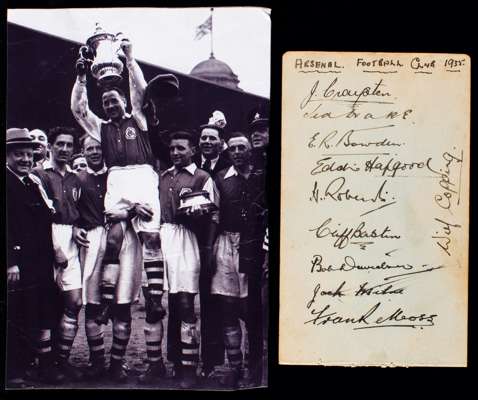 ARSENAL. FOOTBALL CLUB 1935.
J. Crayston
Ted Drake
E.R. Bowden
Eddie Hapgood
H. Roberts
Wilf Copping.
Cliff Bastin
Bob Davidson
Jack Wilson
Frank Moss